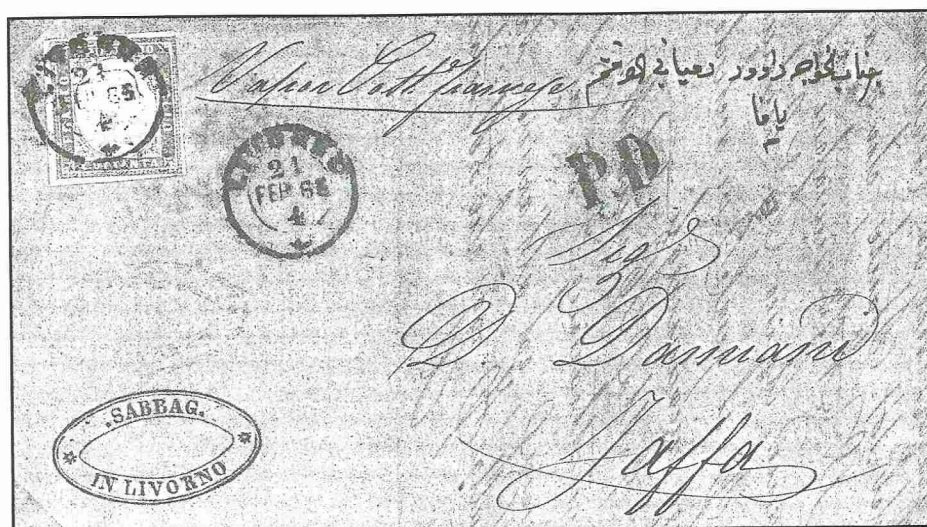 LIVORNO
21
FEB 65
4
Vapor francese
جناب الخواجه داوود دمياني
يافا
LIVORNO
21
FEB 65
4
P.D
Sigr
D. Damiani
Jaffa
.SABBAG.
IN LIVORNO